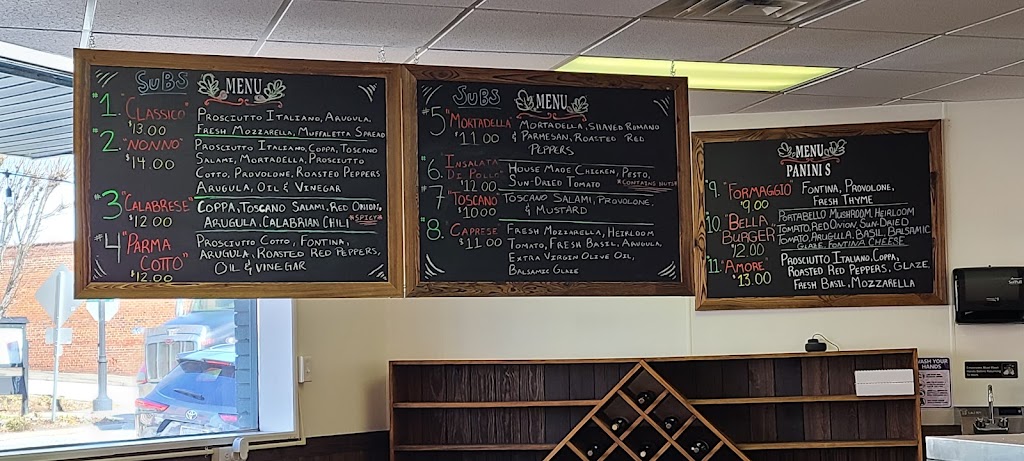 SUBS MENU
#1. "CLASSICO" PROSCIUTTO ITALIANO, ARUGULA,
$13.00 FRESH MOZZARELLA, MUFFALETTA SPREAD
#2. "NONNO" PROSCIUTTO ITALIANO, COPPA, TOSCANO
$14.00 SALAMI, MORTADELLA, PROSCIUTTO
COTTO, PROVOLONE, ROASTED PEPPERS
ARUGULA, OIL & VINEGAR
#3 "CALABRESE" COPPA, TOSCANO SALAMI, RED ONION,
$12.00 ARUGULA, CALABRIAN CHILI *SPICY*
#4 "PARMA PROSCIUTTO COTTO, FONTINA,
COTTO" ARUGULA, ROASTED RED PEPPERS,
$12.00 OIL & VINEGAR
SUBS MENU
#5 "MORTADELLA" MORTADELLA, SHAVED ROMANO
$11.00 & PARMESAN, ROASTED RED
PEPPERS
#6. INSALATA HOUSE MADE CHICKEN, PESTO,
DI POLLO" SUN-DRIED TOMATO *CONTAINS NUTS*
$12.00
#7 "TOSCANO TOSCANO SALAMI, PROVOLONE,
$10.00 & MUSTARD
#8. CAPRESE" FRESH MOZZARELLA, HEIRLOOM
$11.00 TOMATO, FRESH BASIL, ARUGULA,
EXTRA VIRGIN OLIVE OIL,
BALSAMIC GLAZE
MENU
PANINIS
#9. "FORMAGGIO" FONTINA, PROVOLONE,
$9.00 FRESH THYME
#10. "BELLA PORTABELLO MUSHROOM, HEIRLOOM
BURGER" TOMATO, RED ONION, SUN-DRIED
$12.00 TOMATO, ARUGULLA, BASIL, BALSAMIC
GLAZE, FONTINA CHEESE
#11. "AMORE" PROSCIUTTO ITALIANO, COPPA,
$13.00 ROASTED RED PEPPERS, GLAZE,
FRESH BASIL, MOZZARELLA
WASH YOUR
HANDS